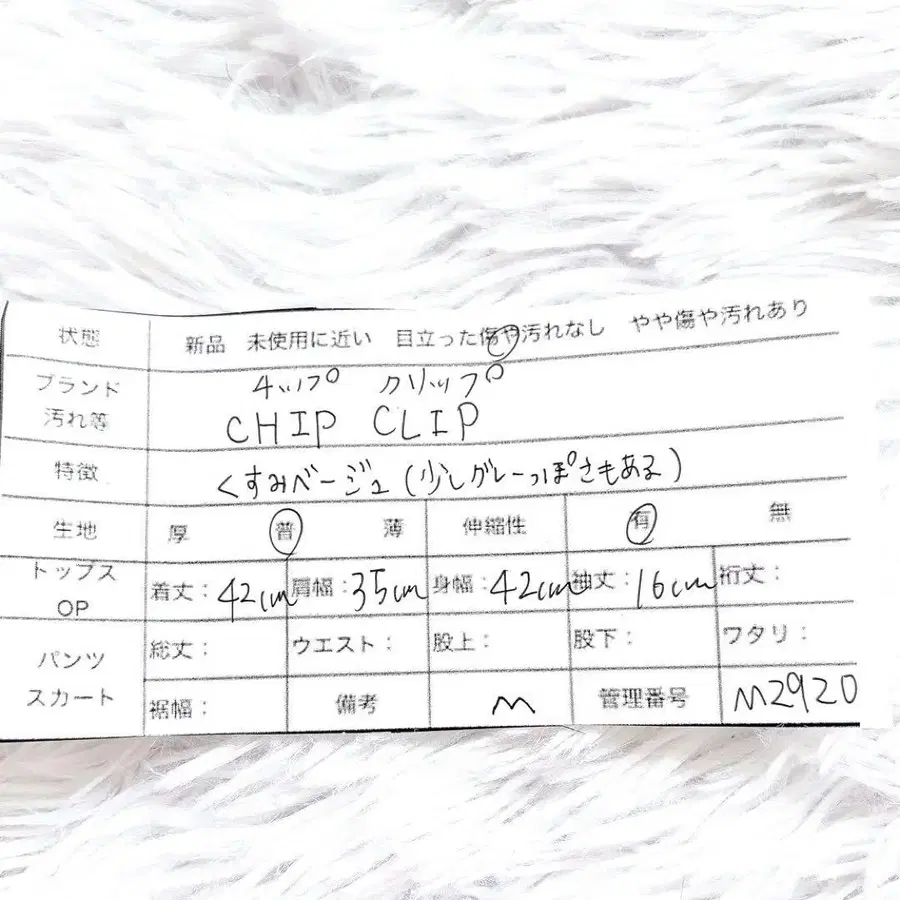 状態 新品 未使用に近い 目立った傷や汚れなし やや傷や汚れあり
ブランド チップ クリップ
汚れ等 CHIP CLIP
特徴 くすみベージュ(少しグレーっぽさもある)
生地 厚 普 薄 伸縮性 有 無
トップス 着丈: 42cm 肩幅: 35cm 身幅: 42cm 袖丈: 16cm 裄丈:
OP
パンツ 総丈: ウエスト: 股上: 股下: ワタリ:
スカート 裾幅: 備考 M 管理番号 M2920